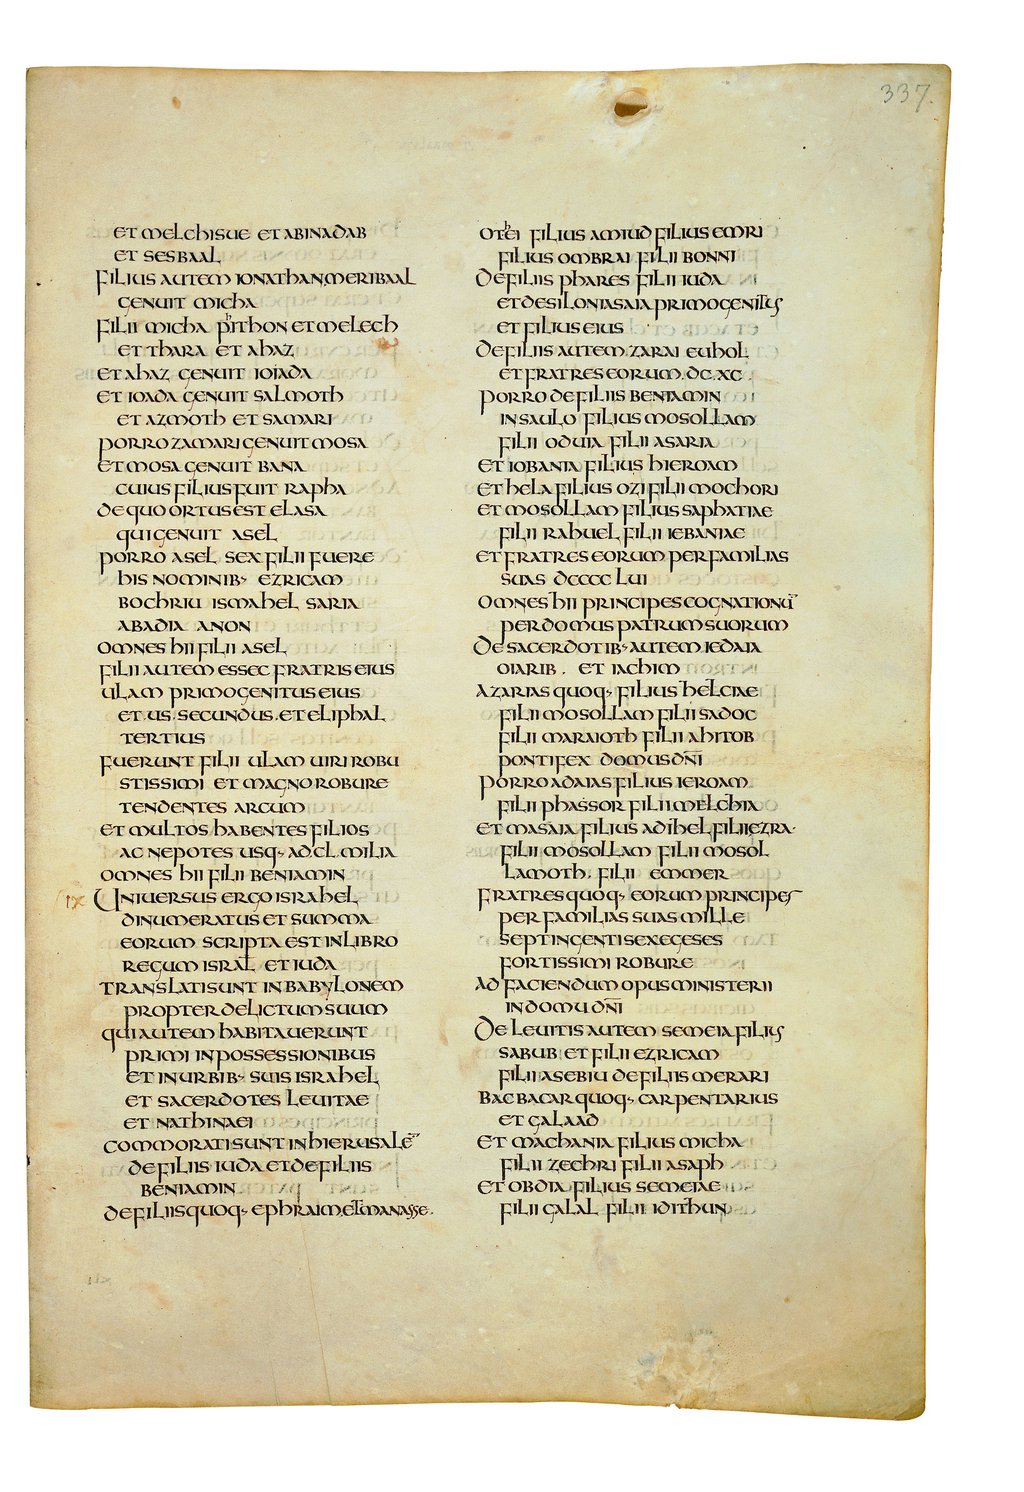 337.
ET MELCHISUE ET ABINADAB
ET SESBAAL
FILIUS AUTEM IONATHAN, MERIBAAL
GENUIT MICHA
FILII MICHA PITHON ET MELECH
ET THARA ET AHAZ
ET AHAZ GENUIT IOIADA
ET IOADA GENUIT SALMOTH
ET AZMOTH ET SAMARI
PORRO ZAMARI GENUIT MOSA
ET MOSA GENUIT BANA
CUIUS FILIUS FUIT RAPHA
DE QUO ORTUS EST ELASA
QUI GENUIT ASEL
PORRO ASEL SEX FILII FUERE
HIS NOMINIB· EZRICAM
BOCHRIU ISMAHEL SARIA
ABADIA ANON
OMNES HII FILII ASEL
FILII AUTEM ESSEC FRATRIS EIUS
ULAM PRIMOGENITUS EIUS
ET·US·SECUNDUS·ET ELIPHAL
TERTIUS
FUERUNT FILII ULAM UIRI ROBU
STISSIMI ET MAGNO ROBURE
TENDENTES ARCUM
ET MULTOS HABENTES FILIOS
AC NEPOTES USQ· AD·CL·MILIA
OMNES HII FILII BENIAMIN
IX UNIUERSUS ERGO ISRAHEL
DINUMERATUS ET SUMMA
EORUM SCRIPTA EST IN LIBRO
REGUM ISRAL ET IUDA
TRANSLATI SUNT IN BABYLONEM
PROPTER DELICTUM SUUM
QUI AUTEM HABITAUERUNT
PRIMI IN POSSESSIONIBUS
ET IN URBIB· SUIS ISRAHEL
ET SACERDOTES LEUITAE
ET NATHINAEI
COMMORATI SUNT IN HIERUSALĒ
DE FILIIS IUDA ET DE FILIIS
BENIAMIN
DE FILIIS QUOQ· EPHRAIM, ET MANASSE·
OTHEI FILIUS AMIUD FILIUS EMRI
FILIUS OMBRAI FILII BONNI
DE FILIIS PHARES FILII IUDA
ET DE SILONI ASAIA PRIMOGENITUS
ET FILIUS EIUS
DE FILIIS AUTEM ZARAI EUHOL
ET FRATRES EORUM·DC·XC·
PORRO DE FILIIS BENIAMIN
IN SAULO FILIUS MOSOLLAM
FILII ODUIA FILII ASARIA
ET IOBANIA FILIUS HIEROAM
ET HELA FILIUS OZI FILII MOCHORI
ET MOSOLLAM FILIUS SAPHATIAE
FILII RAHUEL FILII IEBANIAE
ET FRATRES EORUM PER FAMILIAS
SUAS DCCCC LUI
OMNES HII PRINCIPES COGNATIONŪ
PER DOMUS PATRUM SUORUM
DE SACERDOTIB· AUTEM IEDAIA
OIARIB· ET IACHIM
AZARIAS QUOQ· FILIUS HELCIAE
FILII MOSOLLAM FILII SADOC
FILII MARAIOTH FILII AHITOB
PONTIFEX DOMUS DN̄I
PORRO ADAIAS FILIUS IEROAM
FILII PHASSOR FILII MELCHIA
ET MASAIA FILIUS ADIHEL FILII EZRA·
FILII MOSOLLAM FILII MOSOL
LAMOTH· FILII EMMER
FRATRES QUOQ· EORUM PRINCIPES
PER FAMILIAS SUAS MILLE
SEPTINGENTI SEXEGESES
FORTISSIMI ROBURE
AD FACIENDUM OPUS MINISTERII
IN DOMU DN̄I
DE LEUITIS AUTEM SEMEIA FILIUS
SABUB ET FILII EZRICAM
FILII ASEBIU DE FILIIS MERARI
BACBACAR QUOQ· CARPENTARIUS
ET GALAAD
ET MACHANIA FILIUS MICHA
FILII ZECHRI FILII ASAPH
ET OBDIA FILIUS SEMEIAE
FILII GALAL FILII IDITHUN